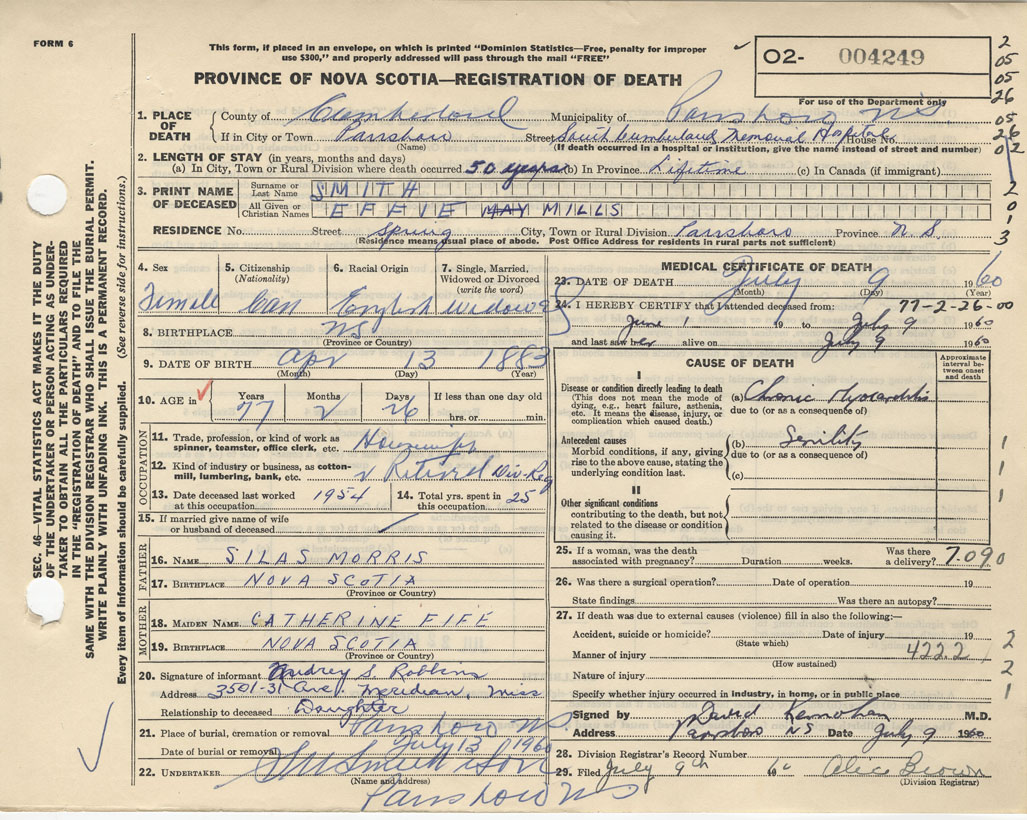 FORM 6
This form, if placed in an envelope, on which is printed "Dominion Statistics—Free, penalty for improper
use $300," and properly addressed will pass through the mail "FREE"
PROVINCE OF NOVA SCOTIA—REGISTRATION OF DEATH
02- 004249
For use of the Department only
2
05
05
26
05
26
02
2
0
1
3
1. PLACE OF DEATH
County of Cumberland Municipality of Parrsboro NS
If in City or Town Parrsboro Street South Cumberland Memorial Hospital House No.
(Name) (If death occurred in a hospital or institution, give the name instead of street and number)
2. LENGTH OF STAY (in years, months and days)
(a) In City, Town or Rural Division where death occurred 50 years (b) In Province Lifetime (c) In Canada (if immigrant)
3. PRINT NAME OF DECEASED
Surname or Last Name SMITH
All Given or Christian Names EFFVE MAY MILLS
RESIDENCE No. Street Spring City, Town or Rural Division Parrsboro Province N.S.
(Residence means usual place of abode. Post Office Address for residents in rural parts not sufficient)
4. Sex
Female
5. Citizenship
(Nationality)
Can
6. Racial Origin
English
7. Single, Married,
Widowed or Divorced
(write the word)
Widowed
8. BIRTHPLACE NS
(Province or Country)
9. DATE OF BIRTH Apr 13 1883
(Month) (Day) (Year)
10. AGE in
Years Months Days If less than one day old
77 2 26 hrs. or min.
OCCUPATION
11. Trade, profession, or kind of work as
spinner, teamster, office clerk, etc. Housewife
12. Kind of industry or business, as cotton-
mill, lumbering, bank, etc. Retired Div-Reg
13. Date deceased last worked
at this occupation. 1954
14. Total yrs. spent in
this occupation. 25
15. If married give name of wife
or husband of deceased
FATHER
16. NAME SILAS MORRIS
17. BIRTHPLACE NOVA SCOTIA
(Province or Country)
MOTHER
18. MAIDEN NAME CATHERINE FIFE
19. BIRTHPLACE NOVA SCOTIA
(Province or Country)
20. Signature of informant Audrey S. Robbins
Address 3501-31 Ave. Meridian, Miss
Relationship to deceased Daughter
21. Place of burial, cremation or removal Parrsboro NS
Date of burial or removal July 13 1960
22. UNDERTAKER Smith & Son
(Name and address)
Parrsboro NS
MEDICAL CERTIFICATE OF DEATH
23. DATE OF DEATH July 9 1960
(Month) (Day) (Year)
24. I HEREBY CERTIFY that I attended deceased from: 77-2-26-00
June 1 19 to July 9 1960
and last saw her alive on July 9 1960
CAUSE OF DEATH
Approximate interval between onset and death
I
Disease or condition directly leading to death
(This does not mean the mode of
dying, e.g., heart failure, asthenia,
etc. It means the disease, injury, or
complication which caused death.)
(a) Chronic Myocarditis
due to (or as a consequence of)
Antecedent causes
Morbid conditions, if any, giving
rise to the above cause, stating the
underlying condition last.
(b) Senility
due to (or as a consequence of)
(c)
1
1
1
II
Other significant conditions
contributing to the death, but not
related to the disease or condition
causing it.
25. If a woman, was the death
associated with pregnancy? Duration weeks. Was there
a delivery? 7.090
26. Was there a surgical operation? Date of operation 19
State findings Was there an autopsy?
27. If death was due to external causes (violence) fill in also the following:—
Accident, suicide or homicide? Date of injury 19
(State which)
Manner of injury 422.2
(How sustained)
Nature of injury
Specify whether injury occurred in industry, in home, or in public place
2
1
2
1
Signed by David Kernohan M.D.
Address Parrsboro NS Date July 9 1960
28. Division Registrar's Record Number
29. Filed July 9th 60 Alice Brown
(Division Registrar)
SEC. 46—VITAL STATISTICS ACT MAKES IT THE DUTY
OF THE UNDERTAKER OR PERSON ACTING AS UNDER-
TAKER TO OBTAIN ALL THE PARTICULARS REQUIRED
IN THE "REGISTRATION OF DEATH" AND TO FILE THE
SAME WITH THE DIVISION REGISTRAR WHO SHALL ISSUE THE BURIAL PERMIT.
WRITE PLAINLY WITH UNFADING INK. THIS IS A PERMANENT RECORD.
Every item of information should be carefully supplied. (See reverse side for instructions.)